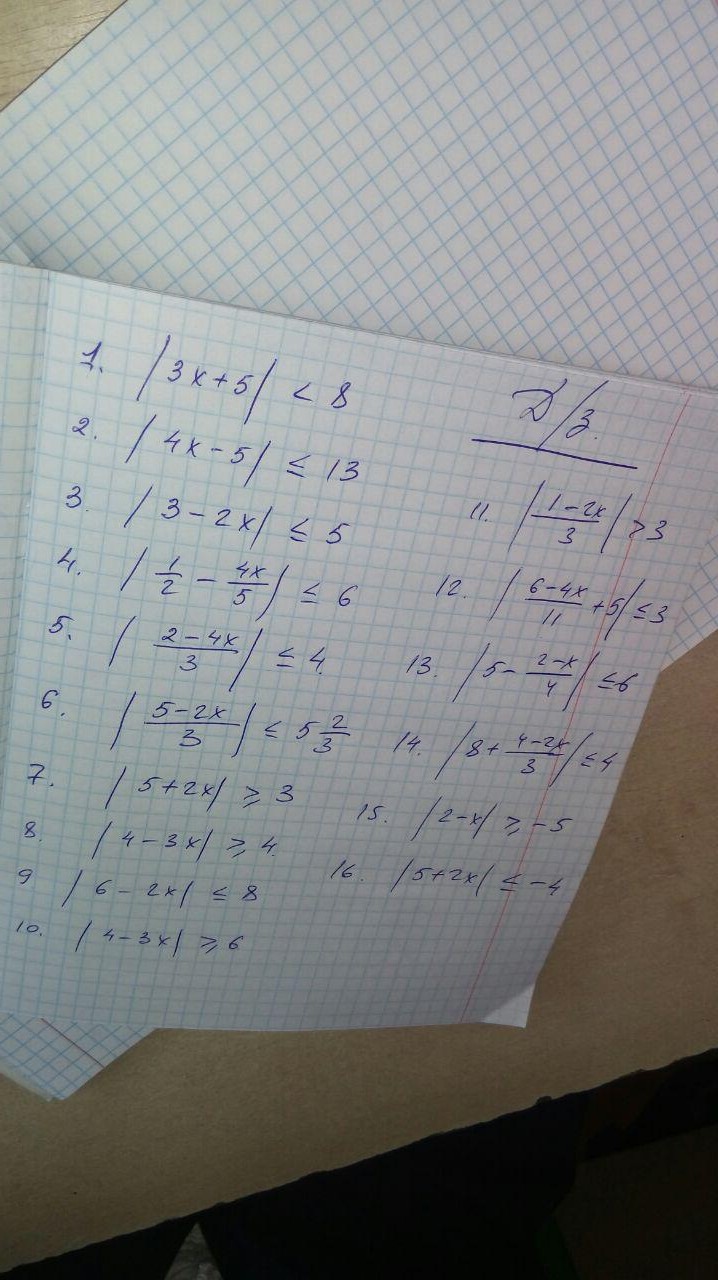 1. |3x+5| < 8
2. |4x-5| ≤ 13
3. |3-2x| ≤ 5
4. |1/2 - 4x/5| ≤ 6
5. |(2-4x)/3| ≤ 4
6. |(5-2x)/3| ≤ 5 2/3
7. |5+2x| ≥ 3
8. |4-3x| ≥ 4
9 |6-2x| ≤ 8
10. |4-3x| ≥ 6
Д/з.
11. |(1-2x)/3| > 3
12. |(6-4x)/11 + 5| ≤ 3
13. |5 - (2-x)/4| ≤ 6
14. |8 + (4-2x)/3| ≤ 4
15. |2-x| ≥ -5
16. |5+2x| ≤ -4